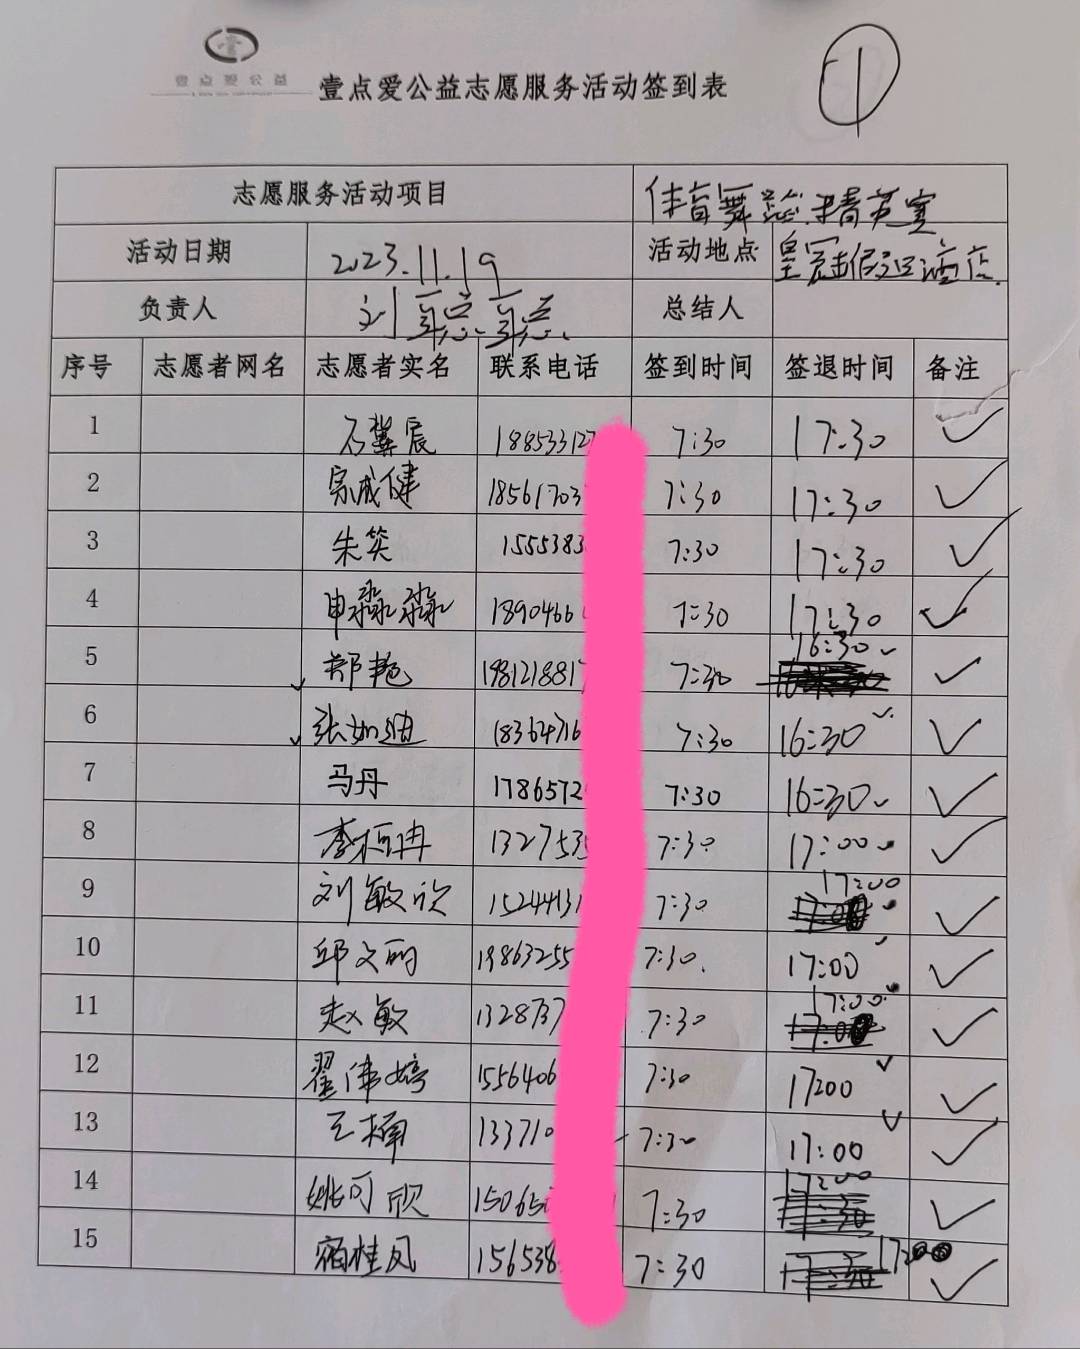 壹点爱公益
壹点爱公益志愿服务活动签到表
1
志愿服务活动项目 体育舞蹈精英赛
活动日期 2023.11.19 活动地点 皇冠假日酒店
负责人 刘 总结人
序号 志愿者网名 志愿者实名 联系电话 签到时间 签退时间 备注
1 石冀辰 188533127 7:30 17:30 ✓
2 宗成健 18561703 7:30 17:30 ✓
3 朱笑 1555383 7:30 17:30 ✓
4 申淼淼 1890466 7:30 17:30 ✓
5 郑艳 198121881 7:30 16:30 ✓
6 张如迪 18364716 7:30 16:30 ✓
7 马丹 1786572 7:30 16:30 ✓
8 李桓冉 1327535 7:30 17:00 ✓
9 刘敏欣 15244131 7:30 17:00 ✓
10 邱文丽 19863255 7:30 17:00 ✓
11 赵敏 1328737 7:30 17:00 ✓
12 翟伟婷 1556406 7:30 17:00 ✓
13 王楠 133710 7:30 17:00 ✓
14 姚可欣 15065 7:30 17:00 ✓
15 宿桂凤 156538 7:30 17:00 ✓